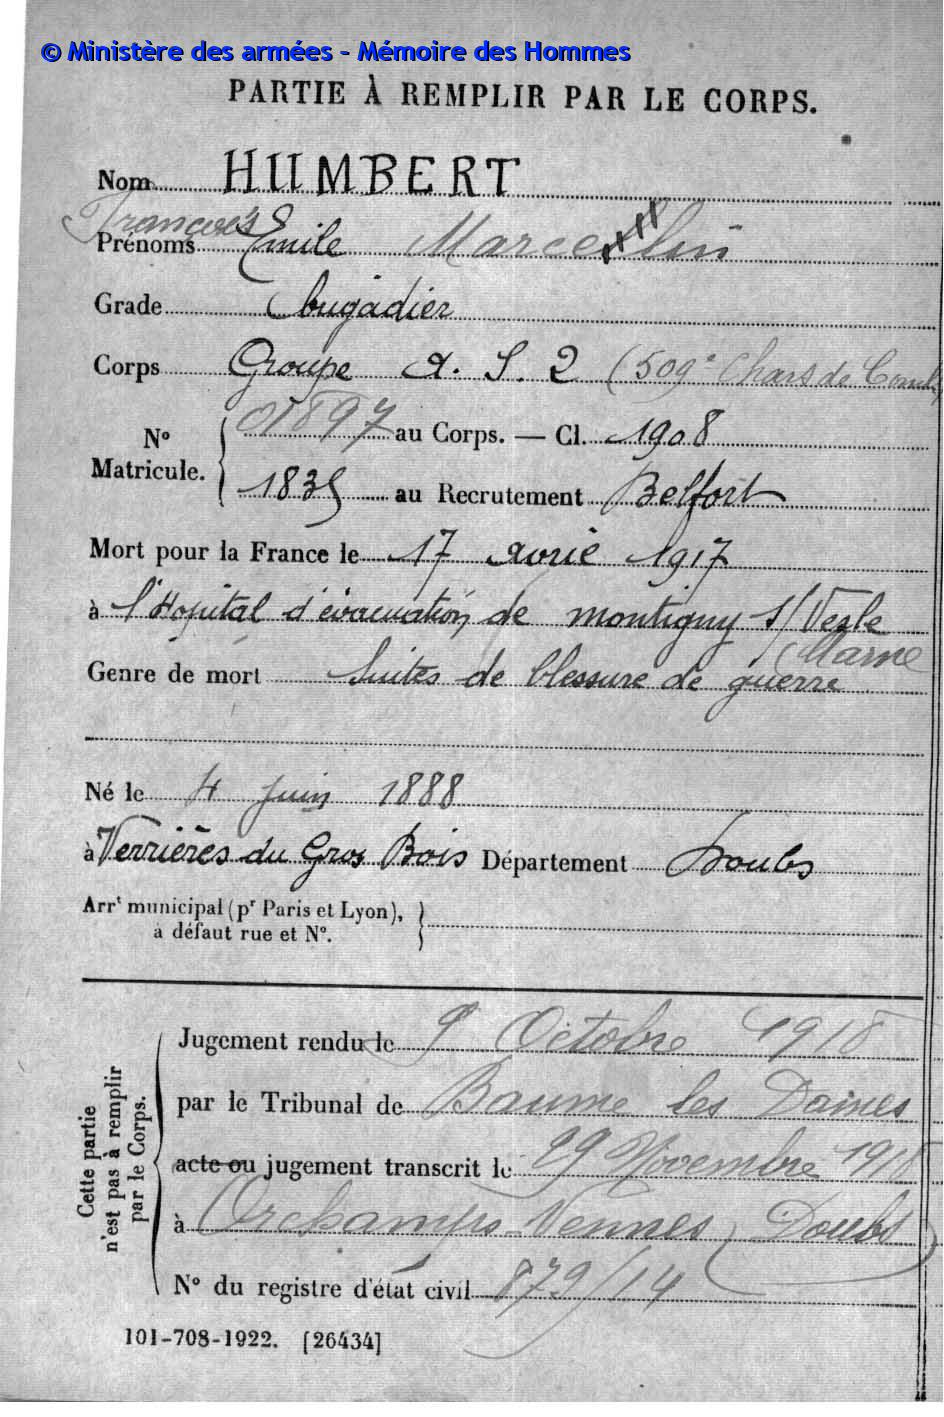 © Ministère des armées - Mémoire des Hommes
PARTIE À REMPLIR PAR LE CORPS.
Nom HUMBERT
François
Prénoms Emile Marcellin
Grade brigadier
Corps Groupe A. S. 2 (509e Chars de Comb
01897 au Corps. — Cl. 1908
N° Matricule.
1835 au Recrutement Belfort
Mort pour la France le 17 avril 1917
à l'Hopital d'évacuation de montigny s/Vesle
Marne
Genre de mort Suites de blessure de guerre
Né le 4 juin 1888
à Verrières du Gros Bois Département Doubs
Arrt municipal (pr Paris et Lyon),
à défaut rue et N°.
Cette partie
n'est pas à remplir
par le Corps.
Jugement rendu le 9 Octobre 1918
par le Tribunal de Baume les Dames
acte ou jugement transcrit le 29 Novembre 1918
à Orchamps-Vennes (Doubs)
N° du registre d'état civil 879/14
101-708-1922. [26434]